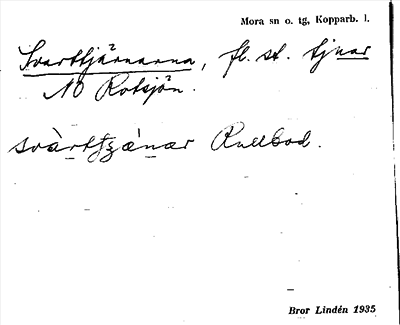 Mora sn o. tg, Kopparb. l.
Svarttjärnarna, fl. st. tjnar
NO Rotsjön.
Rullbod.
Bror Lindén 1935